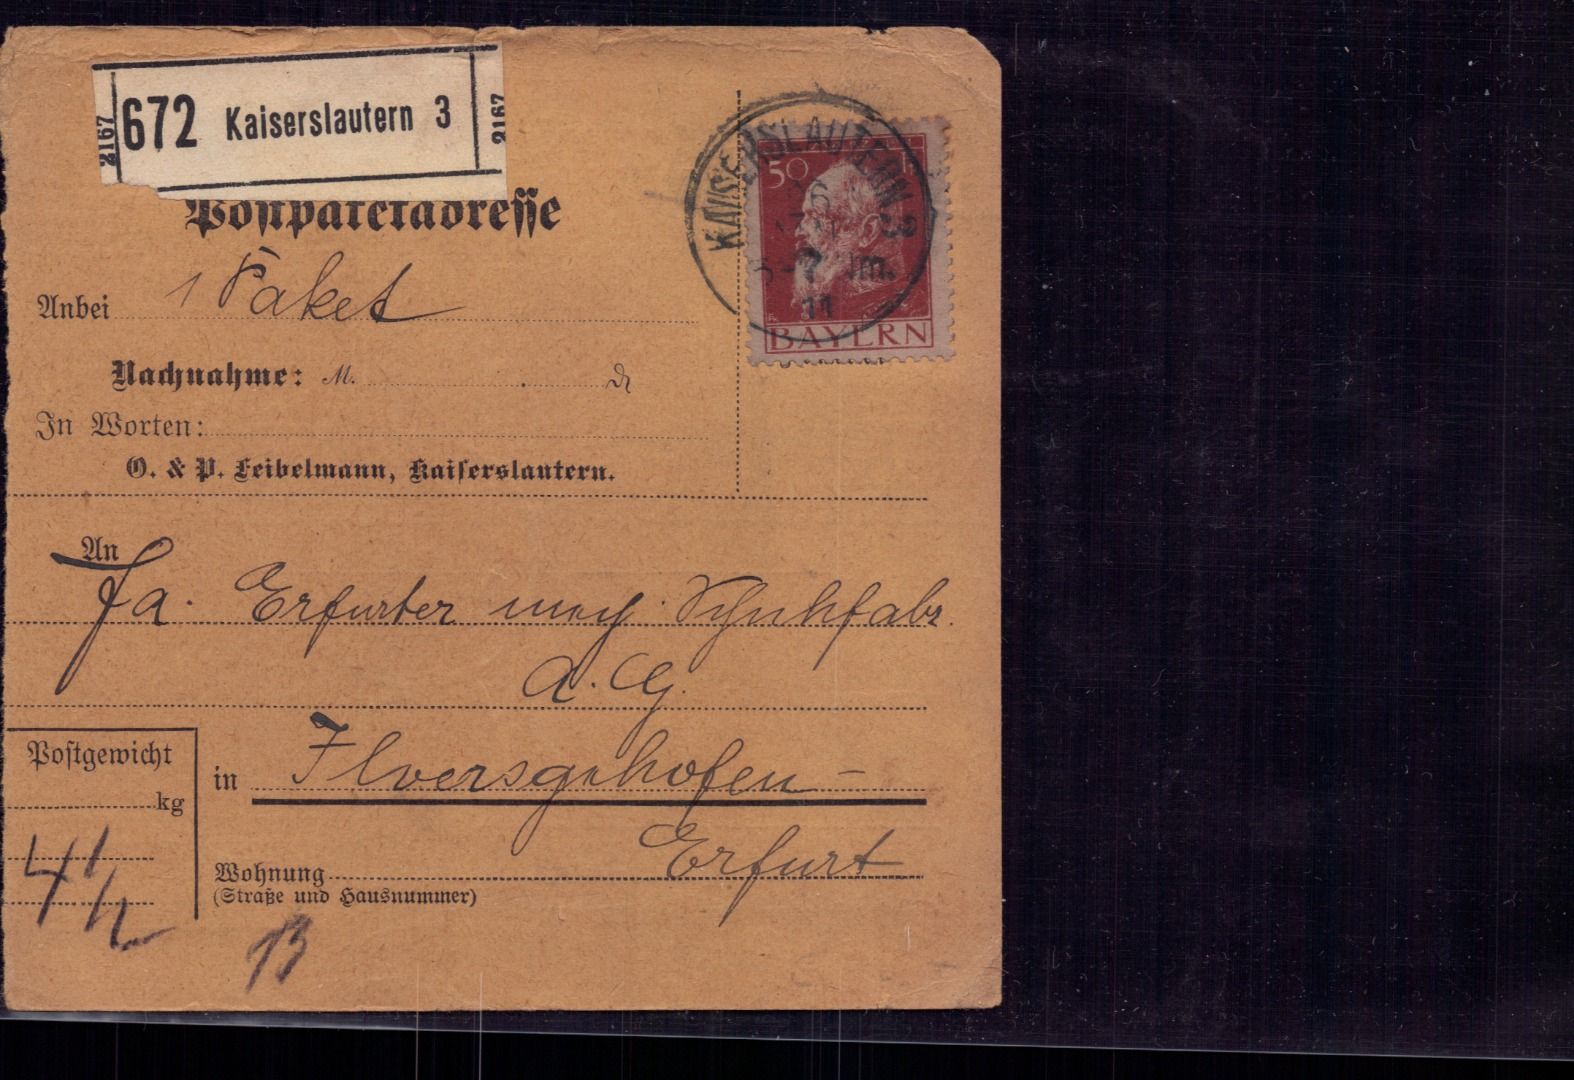 2167
672 Kaiserslautern 3
2167
Postpaketadresse
KAISERSLAUTERN 3
50
7 Nm.
11
BAYERN
Anbei 1 Paket
Nachnahme: M. ₰
In Worten:
O. & P. Feibelmann, Kaiserslautern.
An
Fa. Erfurter mech. Schuhfabr.
A. G.
Postgewicht
kg
4 1/2
in Ilversgehofen -
Erfurt
Wohnung
(Straße und Hausnummer)
13